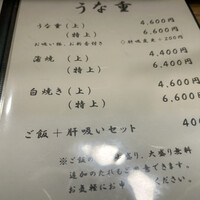 うな重
うな重（上） 4,600円
（特上） 6,600円
お吸い物、お新香付き ○肝吸変更＋200円
蒲焼（上） 4,400円
（特上） 6,400円
白焼き（上） 4,600円
（特上） 6,600円
ご飯＋肝吸いセット 400
※ご飯 大盛り無料
追加のたれもご できます。
お気軽にお申 ください。